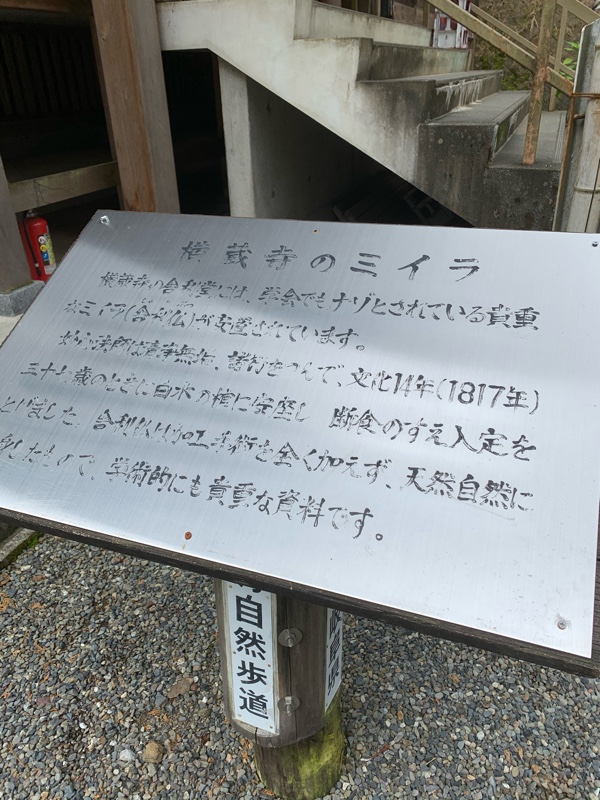 横蔵寺のミイラ
横蔵寺の舎利堂には、学会でもナゾとされている貴重
なミイラ(舎利仏)が安置されています。
妙心法師は諸行をつんで、文化14年(1817年)
三十六歳のときに白木の棺に安座し 断食のすえ入定を
しました。舎利仏は加工手術を全く加えず、天然自然に
したもので、学術的にも貴重な資料です。
自然歩道